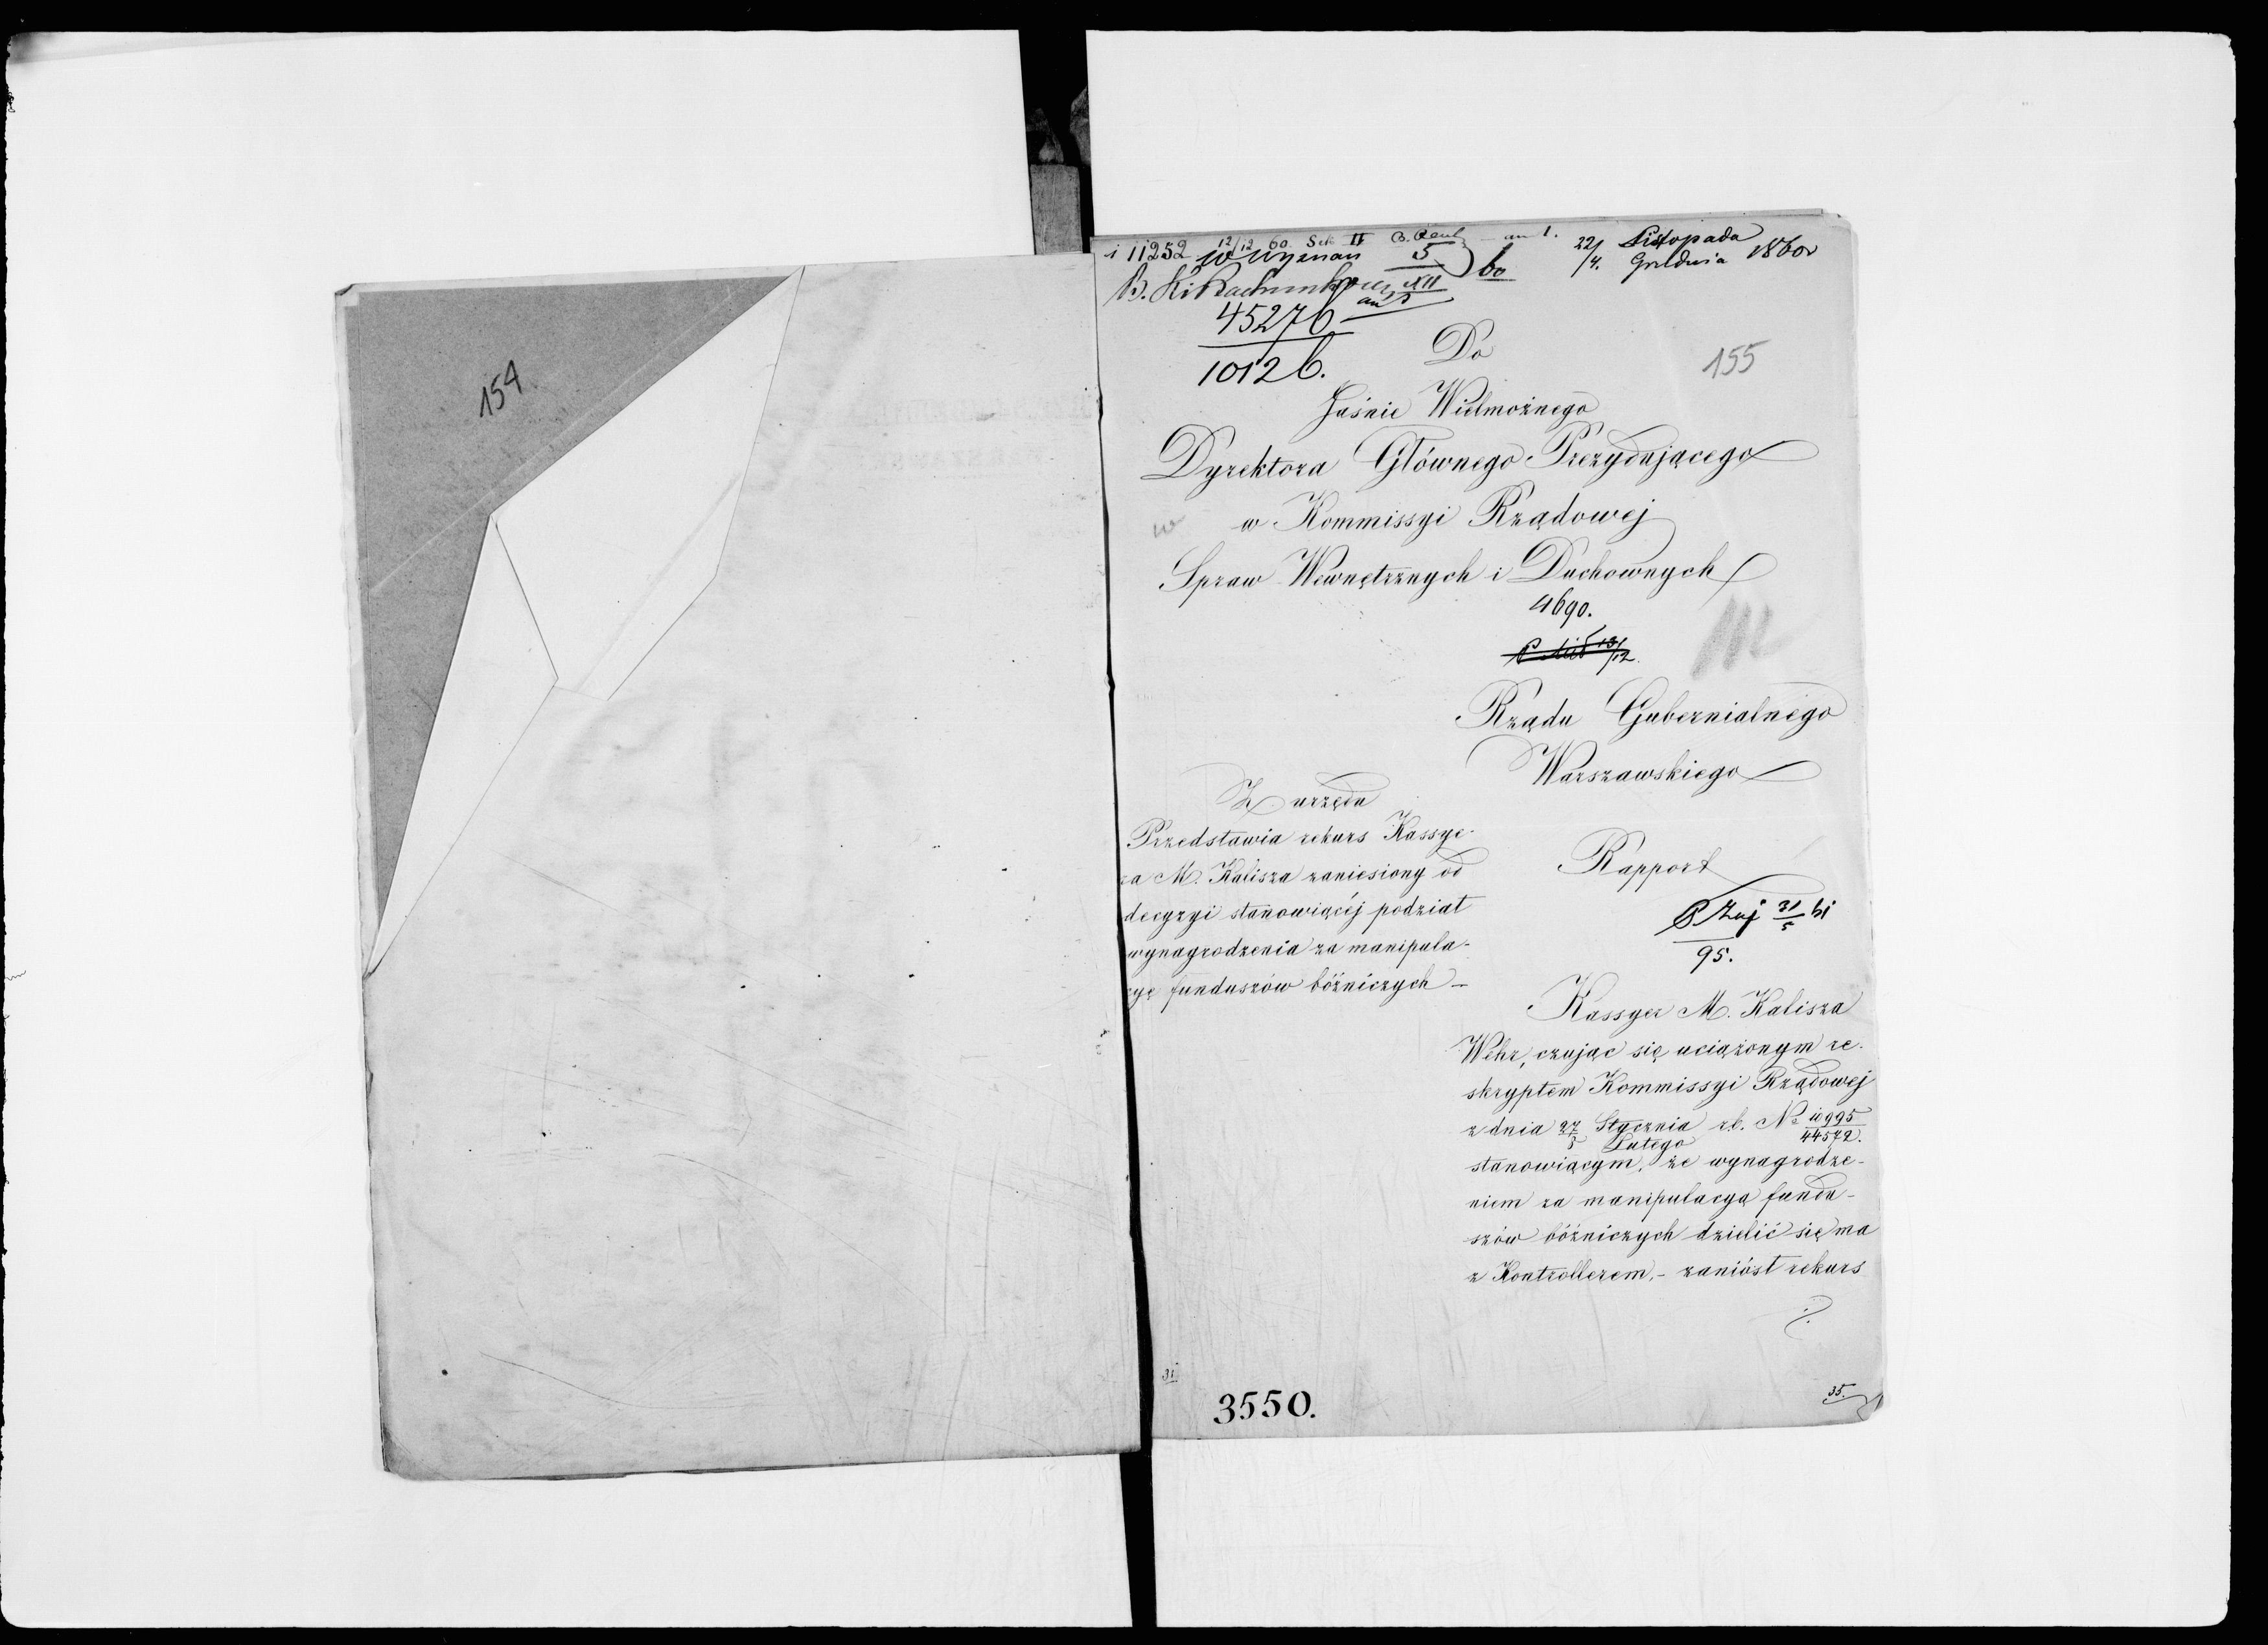 154
i 11252 12/12 60. Sek II
W Wyznań 5/XII 60
22/4. Listopada Grudnia 1860 r
45276
10126.
155
Do
Jaśnie Wielmożnego
Dyrektora Głównego Prezydującego
w Kommissyi Rządowej
Spraw Wewnętrznych i Duchownych
4690.
112
Rządu Gubernialnego
Warszawskiego
Z urzędu
Przedstawia rekurs Kassye-
ra M. Kalisza zaniesiony od
decyzyi stanowiącéj podział
wynagrodzenia za manipula-
cyę funduszów bóżniczych –
Rapport
31/5 61
95.
Kassyer M. Kalisza
Wehr, czując się uciążonym re-
skryptem Kommissyi Rządowej
z dnia 27/3 Stycznia/Lutego r.b. No 10995/44572.
stanowiącym, że wynagrodze-
niem za manipulacyą fundu-
szów bóżniczych dzielić się ma
z Kontrollerem, – zaniósł rekurs
31
3550.
35.